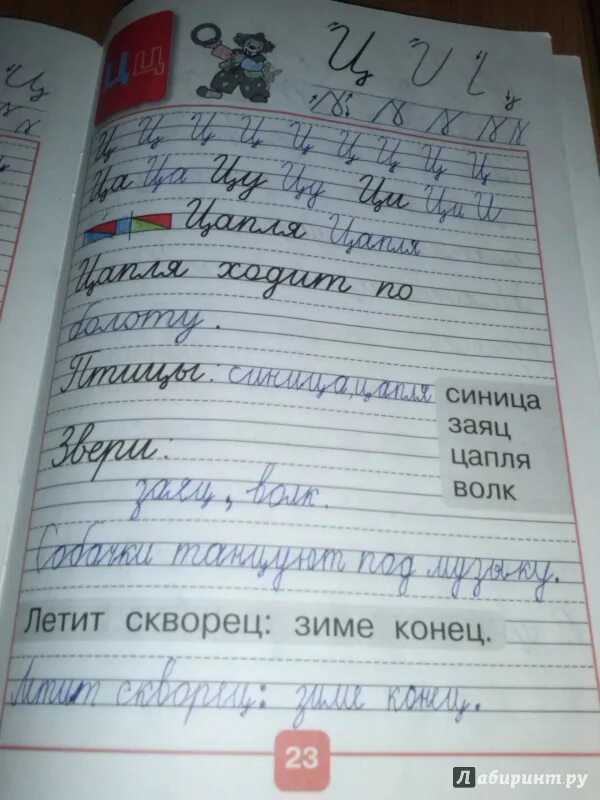 Цц Ц
Ц Ц Ц Ц Ц Ц Ц Ц
Ца Ца Цу Цу Ци Ци И
Цапля Цапля
Цапля ходит по
болоту.
Птицы: синица, цапля
синица
заяц
цапля
волк
Звери:
заяц, волк.
Собачки танцуют под музыку.
Летит скворец: зиме конец.
Летит скворец: зиме конец.
23
Лабиринт.ру